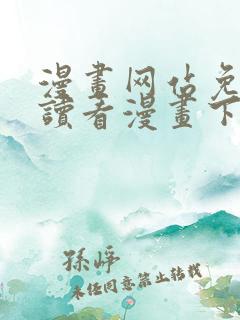 漫畫网佔免
讀者漫畫下
孫崢
未经同意禁止转载